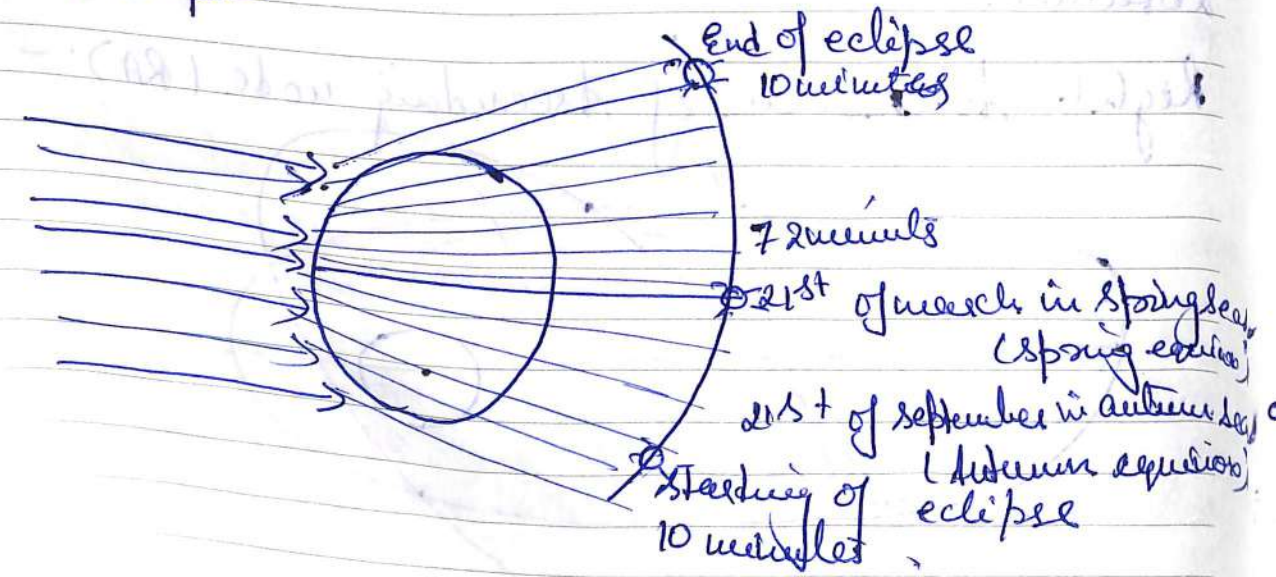 End of eclipse
10 minutes
72 minuts
21st of march in spring seas
(spring equinox)
21st of september in autumn seas
(Autumn equinox)
Starting of eclipse
10 minutes